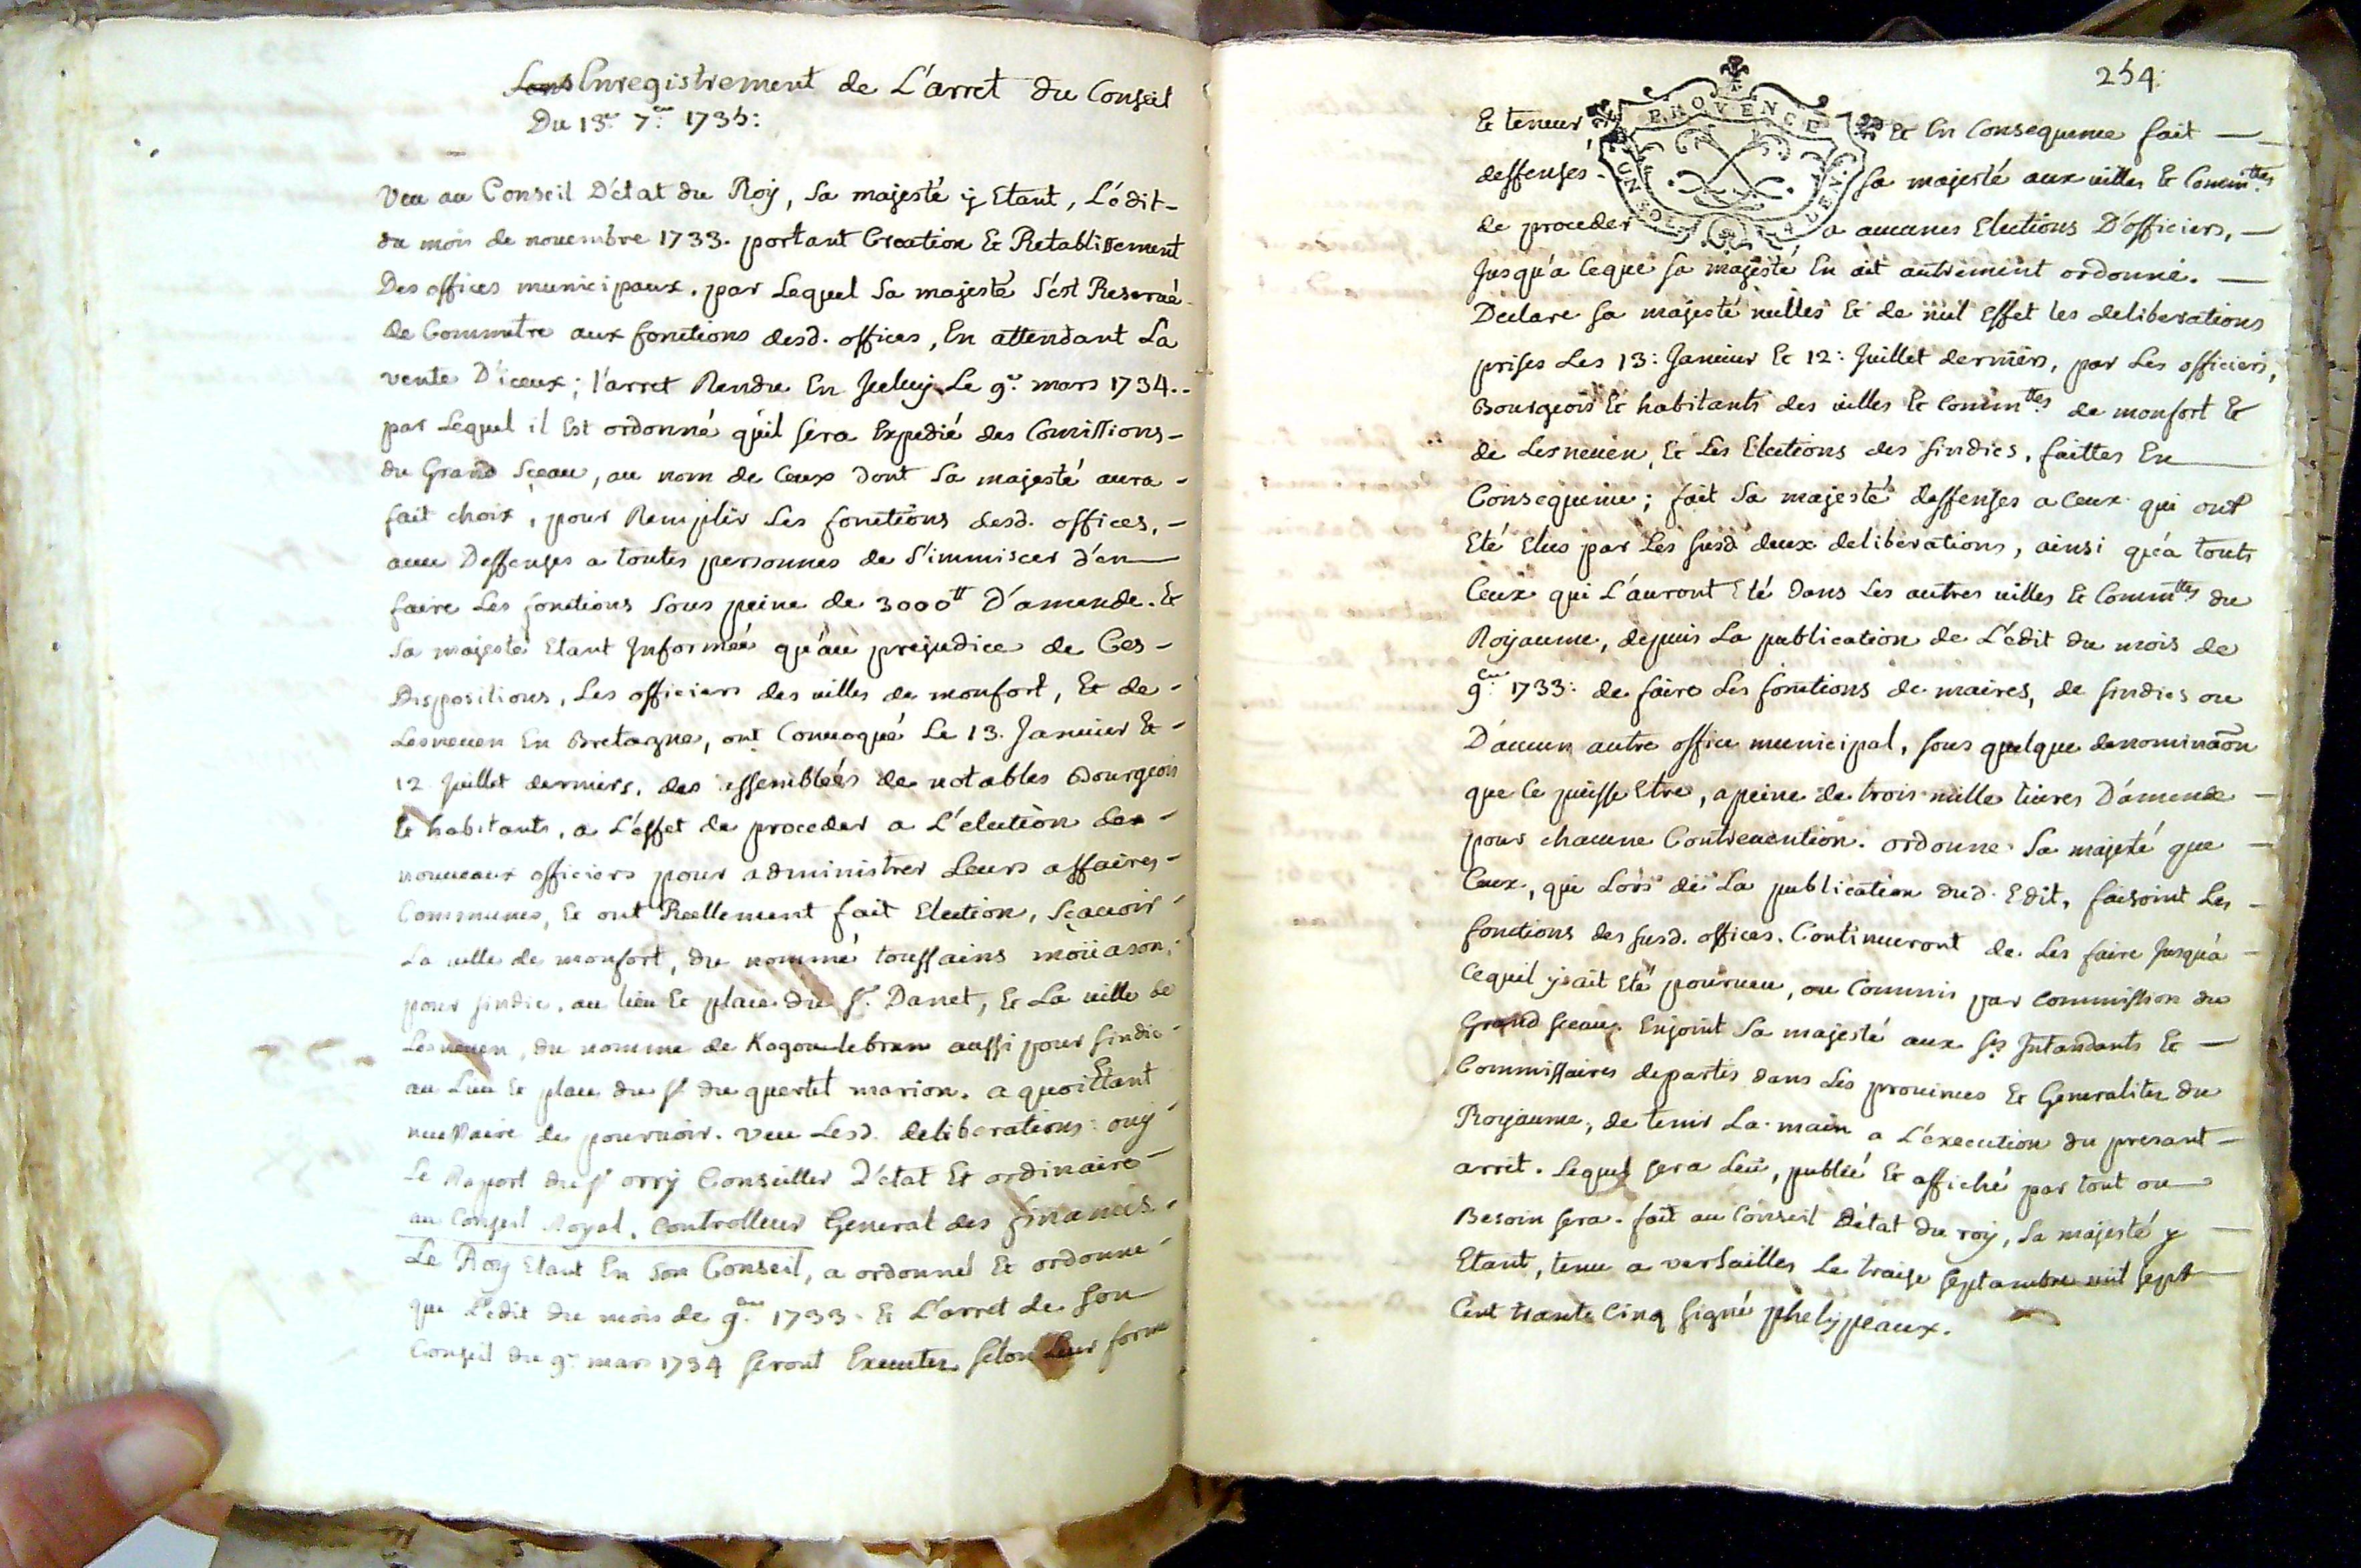 Enregistrement de L'arret du Conseil
Du 13e 7bre 1735:
Veu au Conseil D'état du Roy, Sa majesté y Etant, L'édit
du mois de novembre 1733. portant Creation Et Retablissement
Des offices municipaux. par Lequel Sa majesté S'est Reservé
de Commetre aux fonctions desd. offices, En attendant La
vente D'iceux; l'arret Rendu En Iceluy Le 9e mars 1734.
par Lequel il Est ordonné qu'il sera Expedié des Comissions
du Grand Sceau, au nom de Ceux Dont Sa majesté aura
fait choix, pour Remplir Les fonctions desd. offices,
avec Deffenses a toutes personnes de S'immiscer d'en
faire Les fonctions Sous peine de 3000tt D'amande. Et
Sa majesté Etant Informée qu'au prejudice de Ces
Dispositions, Les officiers des villes de monfort, Et de
Lesneuen En Bretagne, ont Convoqué Le 13. Janvier Et
12 Juillet derniers, des assemblées de notables Bourgeois
Et habitants, a L'effet de proceder a L'election des
nouveaux officiers pour administrer Leurs affaires
Communes, Et ont Reellement fait Election, Sçavoir
La ville de monfort, du nommé toussains moüason,
pour sindic, au lieu Et place du Sr. Danet, Et La ville de
Lesneuen, du nommé de Kogou lebrun aussi pour sindic
au Lieu Et place du Sr du quertel marion. a quoi Etant
necessaire de pourvoir. veu Lesd. deliberations: ouy
Le Raport du Sr orry Conseiller D'état Et ordinaire
au Conseil Royal, Controlleur General des finances.
Le Roy Etant En Son Conseil, a ordonné Et ordonne
que L'edit du mois de 9bre 1733. Et L'arret de Son
Conseil du 9e mars 1734 Seront Executez Selon Leur forme
254.
Et teneur Et En Consequence fait
PROVENCE
deffenses Sa majesté aux villes Et Commttés
de proceder a aucunes Elections D'officiers,
Jusqu'a Ceque Sa majesté En ait autrement ordonné.
Declare Sa majesté nulles Et de nul Effet les deliberations
prises Les 13: Janvier Et 12: Juillet derniers, par Les officiers,
Bourgeois Et habitants des villes Et Commttés de monfort Et
de Lesneuen, Et Les Elections des sindics, faittes En
Consequence; fait Sa majesté deffenses a Ceux qui ont
Eté Elus par Les susd deux deliberations, ainsi qu'a touts
Ceux qui L'auront Eté Dans Les autres villes Et Commttés du
Royaume, depuis La publication de L'edit du mois de
9bre 1733: de faire Les fonctions de maires, de sindics ou
D'aucun autre office municipal, sous quelque denominaōn
que Ce puisse Etre, a peine de trois mille livres D'amende
pour chacune Contrevention. ordonne Sa majesté que
Ceux, qui Lors de La publication dud. Edit, faisoint Les
fonctions des susd. offices. Continueront de Les faire Jusqu'a
Cequil y ait Eté pourveu, ou Commis par Commission du
Grand sceau. Enjoint Sa majesté aux Srs Intandants Et
Commissaires departis dans Les provinces Et Generalitez du
Royaume, de tenir La main a L'execution du presant
arrêt. Lequel sera Leu, publié Et affiché par tout ou
Besoin sera. fait au Conseil D'état du roy, Sa majesté y
Etant, tenu a versailles Le traise septambre mil sept
Cent trante Cinq signé phelypeaux.